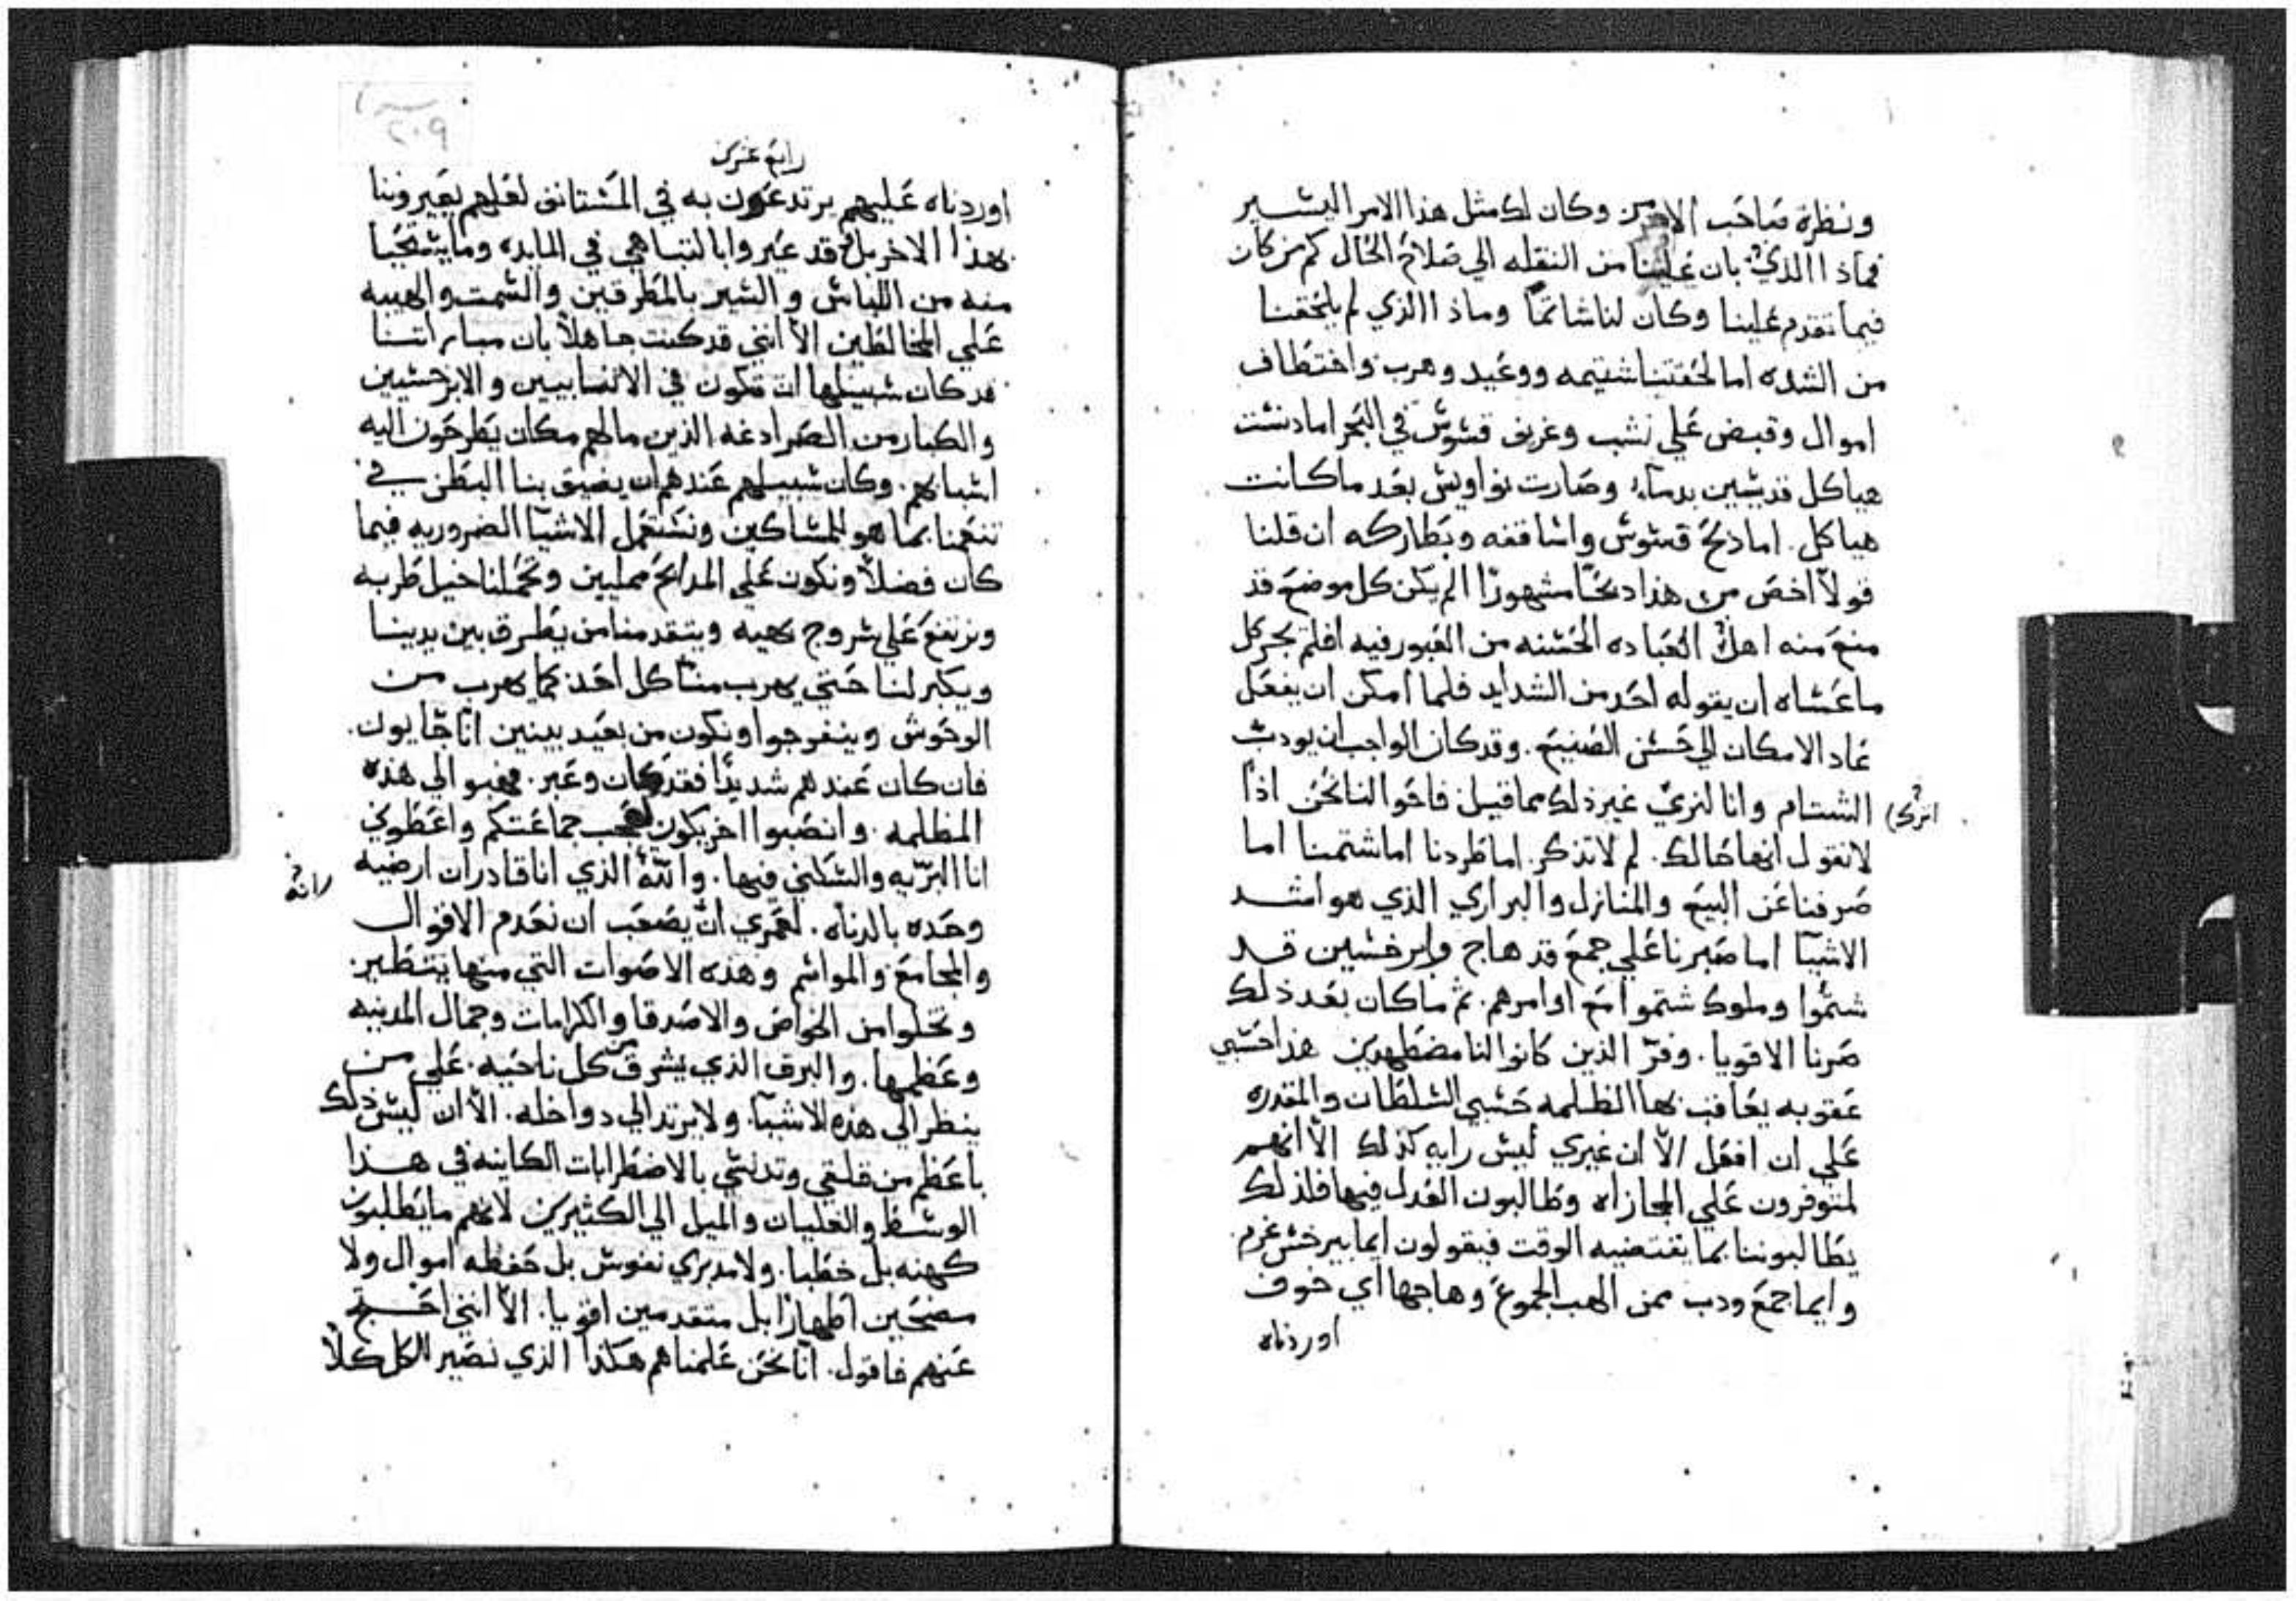 ونظرة صاحب الامر من وكان لك مثل هذا الامر اليسير
فماذا الذي بان علينا من النقله الي صلاح الحال كم من كان
فيما تقدم علينا وكان لنا شاتمًا وماذا الذي لم يلحقنا
من الشده اما لحقتنا شتيمه ووعيد وهرب واختطاف
اموال وقبض علي نشب وغريق قسوس في البحر اما دنست
هياكل قديسين بدماء وصارت نواويس بعد ما كانت
هياكل. اما ذبح قسوس واساقفه وبطاركه ان قلنا
قولاً اخص من هذا ذبحًا مشهورًا الم يكن كل موضع قد
منع منه اهل العباده الحسنه من العبور فيه افلم يجر كل
ما عساه ان يقوله احد من الشدايد فلما امكن ان يفعل
عاد الامكان الي حسن الصنيع. وقد كان الواجب ان يودب
الشتام وانا لنري غير ذلك مما قيل فاخوالنا نحن اذًا
اترك
لا نقول انها حالك. لم لا تذكر. اما طردنا اما شتمنا اما
صرفنا عن البيع والمنازل والبراري الذي هو اشد
الاشيآ اما صبرنا علي جمع قد هاج وابرخسين قد
شتموا وملوك شتموا مع اوامرهم. ثم ما كان بعد ذلك
صرنا الاقويا. وفرّ الذين كانوا لنا مضطهدين هذا حسبي
عقوبه يعاقب بها الظلمه حسبي السلطان والمقدره
علي ان افعل الاّ ان غيري ليس رايه كذلك الاّ انهم
لمتوفرون علي المجازاه وطالبون العدل فيها فلذلك
يطالبوننا بما يقتضيه الوقت فيقولون ايما ابرخس غرم
وايما جمع ودب ممن الهب الجموع وهاجها اي خوف
اوردناه
٢٠٩
رابع عشر
اوردناه عليهم يرتدعون به في المستانف لعلهم يعيروننا
بهذا الاخر بل قد عيروا بالتباهي في المايده وما يستحيا
منه من اللباس والسير بالمطرقين والسمت والهيبه
علي المخالطين الاّ انني قد كنت جاهلاً بان مباراتنا
قد كان سبيلها ان تكون في الانسابيين والابرخسيين
والكبار من الصرادغه الذين ما لهم مكان يطرحون اليه
اشياهم. وكان سبيلهم عندهم ان يضيق بنا البطن في
تنعمنا بما هو للمساكين ونستعمل الاشيآ الضروريه فيما
كان فضلاً ونكون علي المدابح مملين وتحملنا خيل طربه
ونرتفع علي سروج بهيه ويتقدمنا من يطرق بين يدينا
ويكبر لنا حتي يهرب منا كل احد كما يهرب من
الوحوش وينفرجوا ونكون من بعيد بينين انّا جايون.
فان كان عندهم شديدًا فقد كان وعبر. فهبوا لي هذه
المظلمه. وانصبوا اخر يكون لعجب جماعتكم واعطوني
انا البرّيه والسكني فيها. والله الذي انا قادر ان ارضيه
وحده بالدناه. لعمري ان يصعب ان نعدم الاقوال
والمجامع والمواسم وهذه الاصوات التي منها يتطير.
ونخلوا من الخواص والاصدقا والكرامات وجمال المدينه
وعظمها. والبرق الذي يشرق من كل ناحيه. علي من
ينظر الي هذه الاشيا. ولا يرتد الي دواخله. الاّ ان ليس ذلك
باعظم من قلقي وتدنسي بالاضطرابات الكاينه في هذا
الوسط والغليان والميل الي الكثيرين لانهم ما يطلبون
كهنه بل خطبا. ولا مدبري نفوس بل حفظه اموال ولا
مضحين اطهارًا بل متقدمين اقويا. الاّ انني احتج
عنهم فاقول. انا نحن علمناهم هكذا الذي نصير الكل كلاً